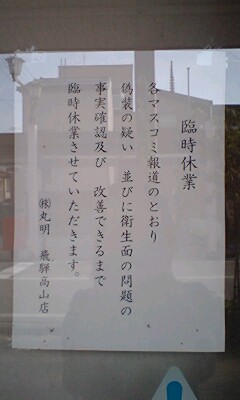 臨時休業
各マスコミ報道のとおり
偽装の疑い 並びに衛生面の問題の
事実確認及び 改善できるまで
臨時休業させていただきます。
㈱丸明 飛騨高山店